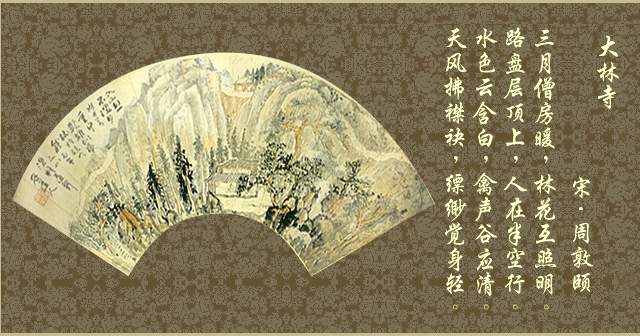 大林寺
宋·周敦颐
三月僧房暖，林花互照明。
路盘层顶上，人在半空行。
水色云含白，禽声谷应清。
天风拂襟袂，缥缈觉身轻。